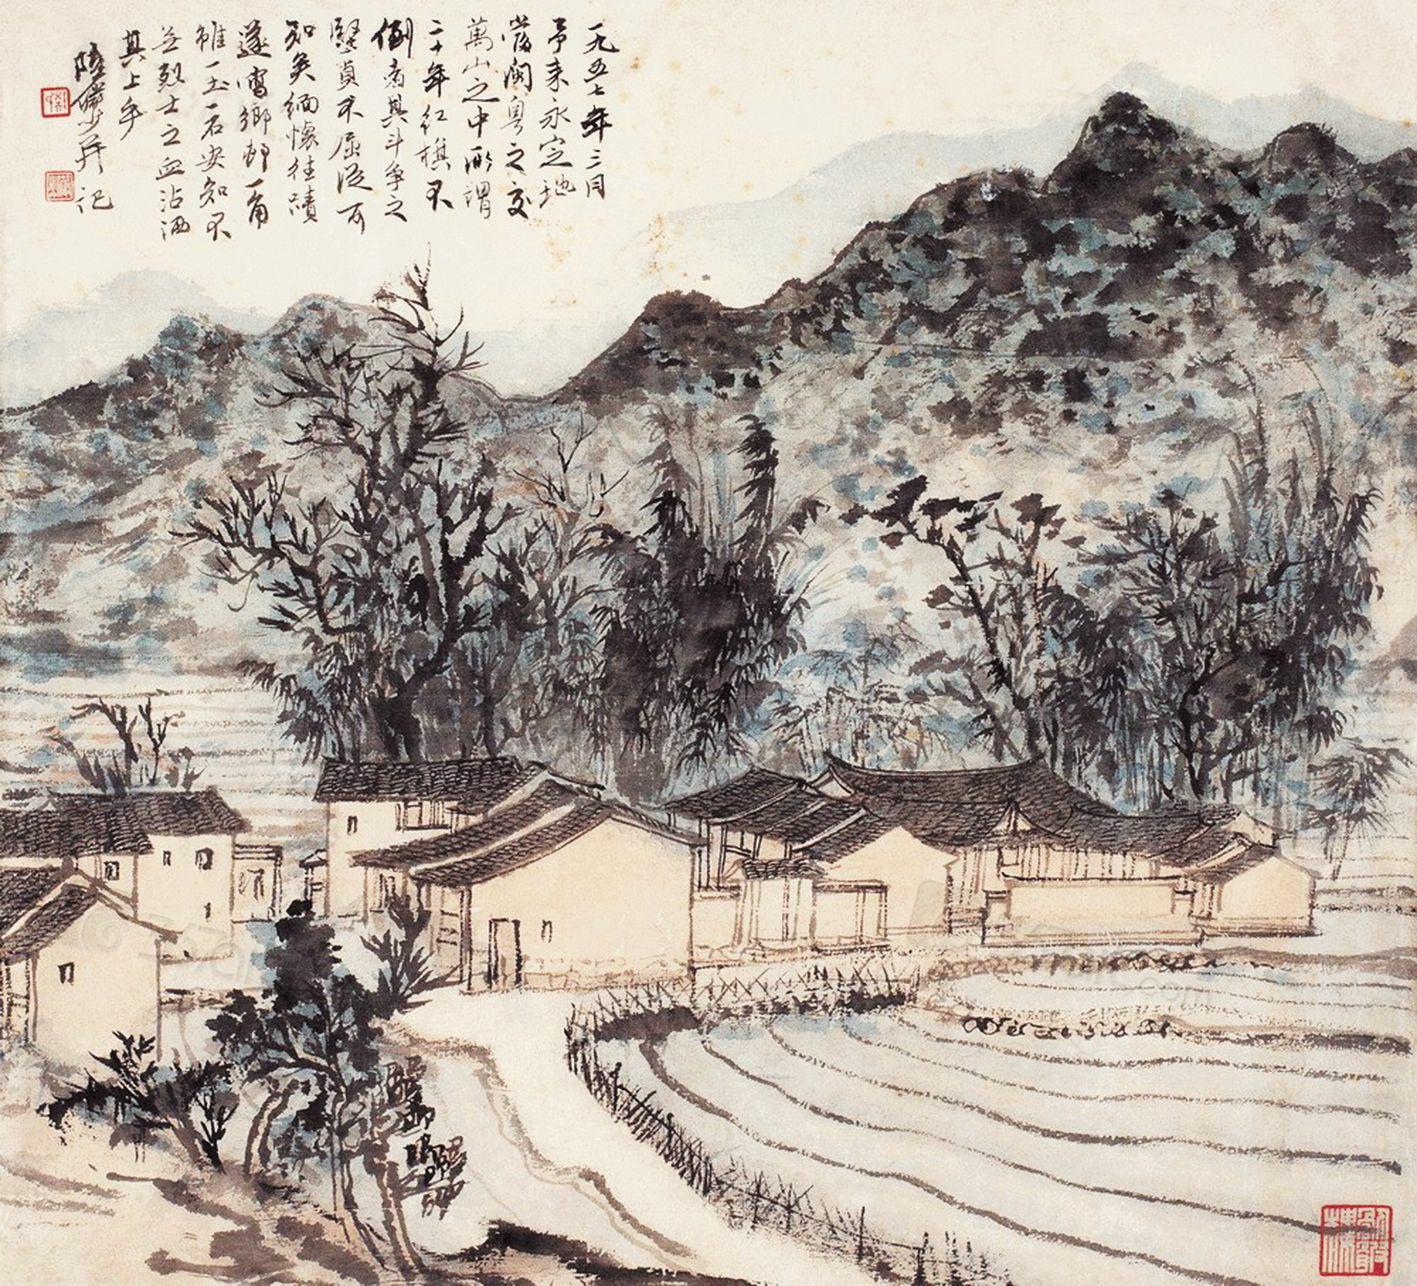 一九五七年三月
予来永定地
当闽粤之交
萬山之中所谓
二十年红旗不
倒者其斗争之
堅貞不屈从可
知矣缅懷往蹟
遂写鄉邨一角
雖一土一石安知不
是烈士之血沾洒
其上乎
陸儼少并记